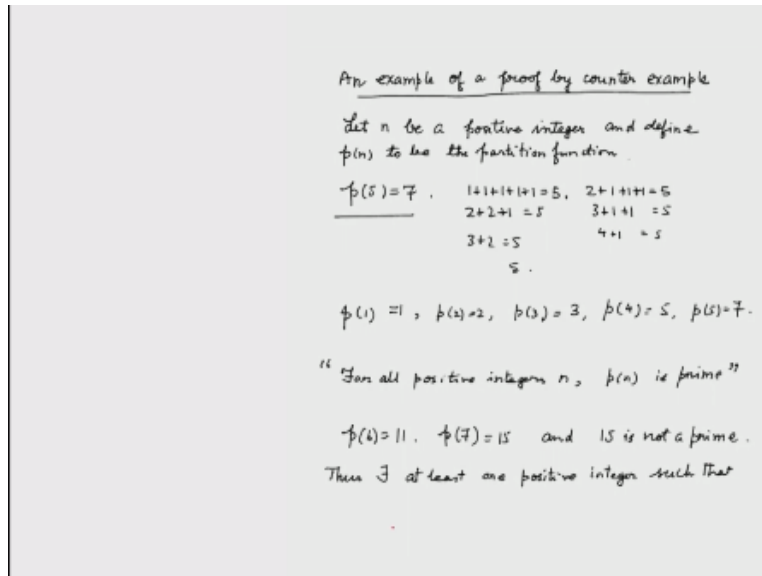 An example of a proof by counter example
Let n be a positive integer and define
p(n) to be the partition function.
p(5)=7. 1+1+1+1+1=5, 2+1+1+1=5
2+2+1=5 3+1+1=5
3+2=5 4+1=5
5.
p(1)=1, p(2)=2, p(3)=3, p(4)=5, p(5)=7.
"For all positive integers n, p(n) is prime"
p(6)=11. p(7)=15 and 15 is not a prime.
Thus ∃ at least one positive integer such that